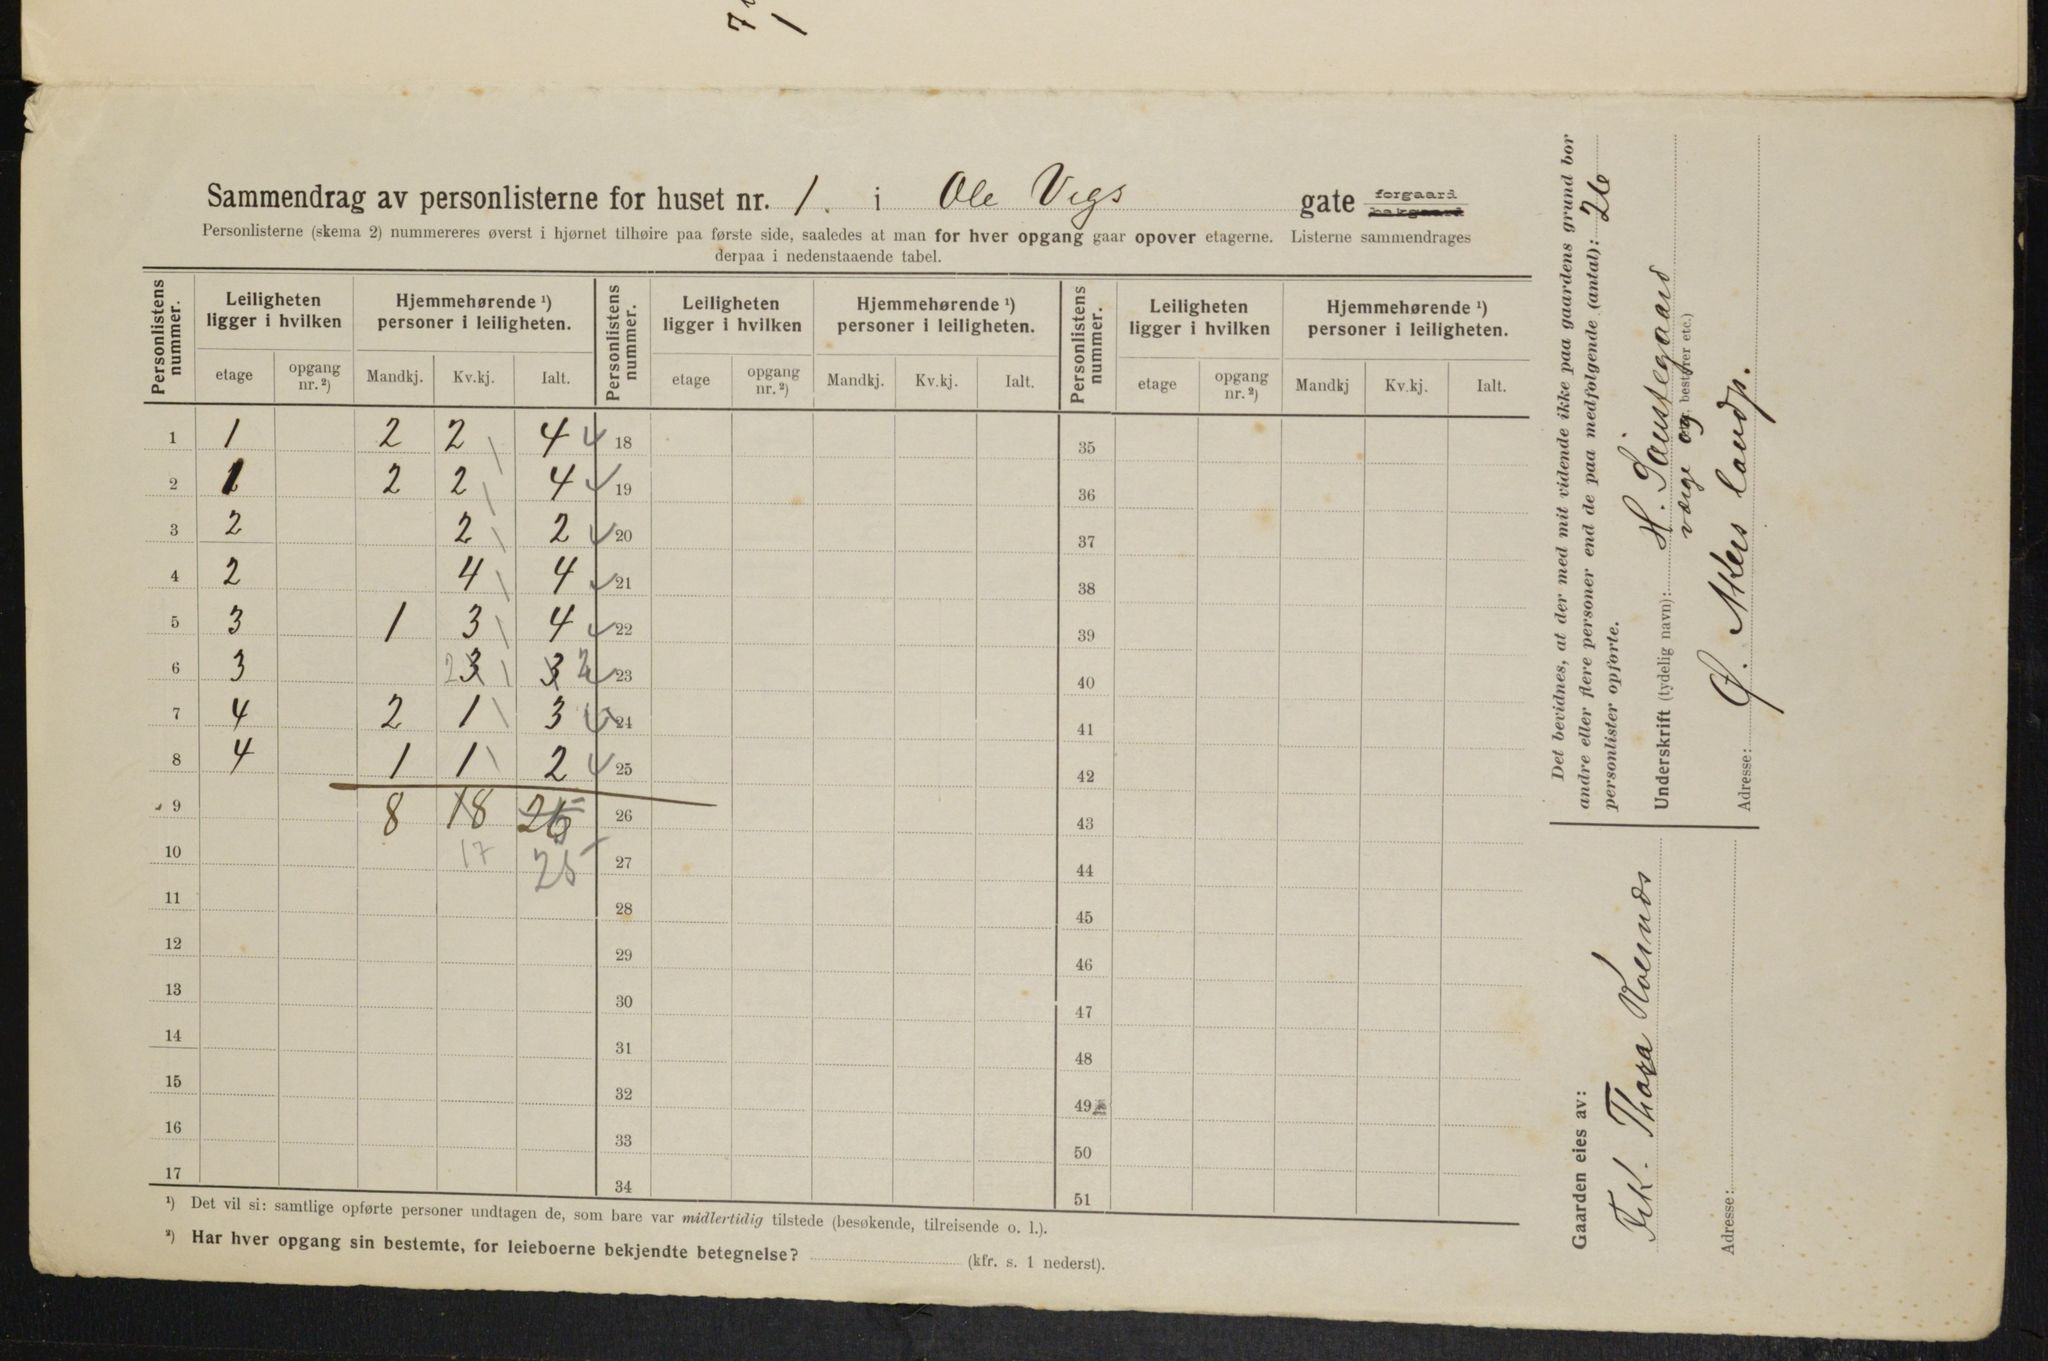 Sammendrag av personlisterne for huset nr. 1. i Ole Vigs gate forgaard bakgaard
Personlisterne (skema 2) nummereres øverst i hjørnet tilhøire paa første side, saaledes at man for hver opgang gaar opover etagerne. Listerne sammendrages
derpaa i nedenstaaende tabel.
Personlistens nummer. Leiligheten ligger i hvilken Hjemmehørende ¹) personer i leiligheten. Personlistens nummer. Leiligheten ligger i hvilken Hjemmehørende ¹) personer i leiligheten. Personlistens nummer. Leiligheten ligger i hvilken Hjemmehørende ¹) personer i leiligheten.
etage opgang nr. ²) Mandkj. Kv.kj. Ialt. etage opgang nr. ²) Mandkj. Kv.kj. Ialt. etage opgang nr. ²) Mandkj Kv.kj. Ialt.
1 1 2 2 4 18 35
2 1 2 2 4 19 36
3 2 2 2 20 37
4 2 4 4 21 38
5 3 1 3 4 22 39
6 3 2 3 3 2 23 40
7 4 2 1 3 24 41
8 4 1 1 2 25 42
9 8 18 26 26 43
10 17 25 27 44
11 28 45
12 29 46
13 30 47
14 31 48
15 32 49
16 33 50
17 34 51
¹) Det vil si: samtlige opførte personer undtagen de, som bare var midlertidig tilstede (besøkende, tilreisende o. l.).
²) Har hver opgang sin bestemte, for leieboerne bekjendte betegnelse? (kfr. s. 1 nederst).
Det bevidnes, at der med mit vidende ikke paa gaardens grund bor
andre eller flere personer end de paa medfølgende (antal): 26
personlister opførte.
Underskrift (tydelig navn): H.
værge og bestyrer etc.)
Adresse: Ø. Akers landp.
Gaarden eies av:
Frk. Thora
Adresse: